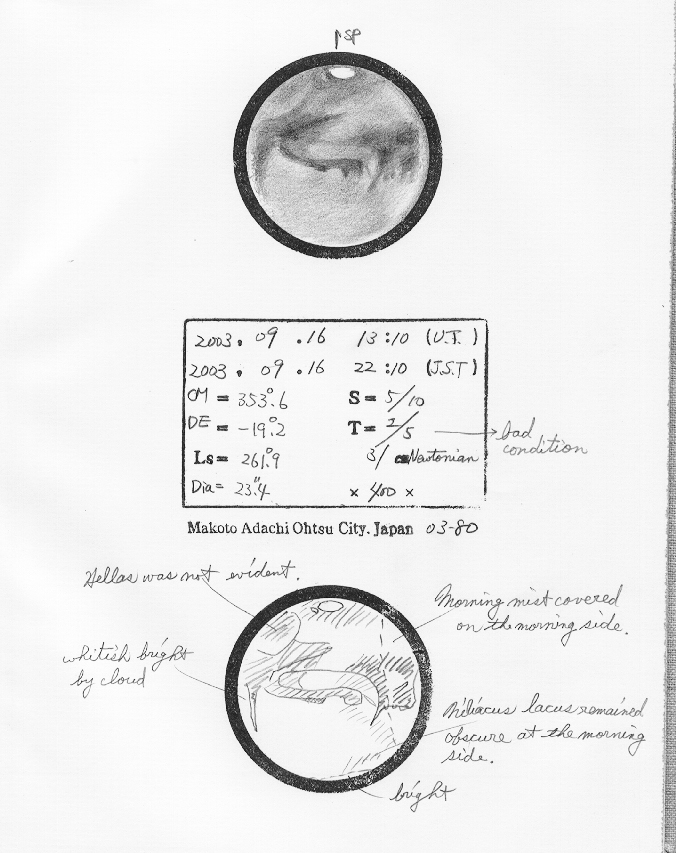 SP
2003. 09 .16 13:10 (U.T.)
2003. 09 .16 22:10 (J.S.T)
CM = 353°.6 S= 5/10
DE = -19°.2 T= 2/5 bad condition
Ls= 261°.9 31 cm Newtonian
Dia= 23".4 × 400 ×
Makoto Adachi Ohtsu City. Japan 03-80
Hellas was not evident.
Morning mist covered
on the morning side.
whitish bright
by cloud
Niliacus lacus remained
obscure at the morning
side.
bright